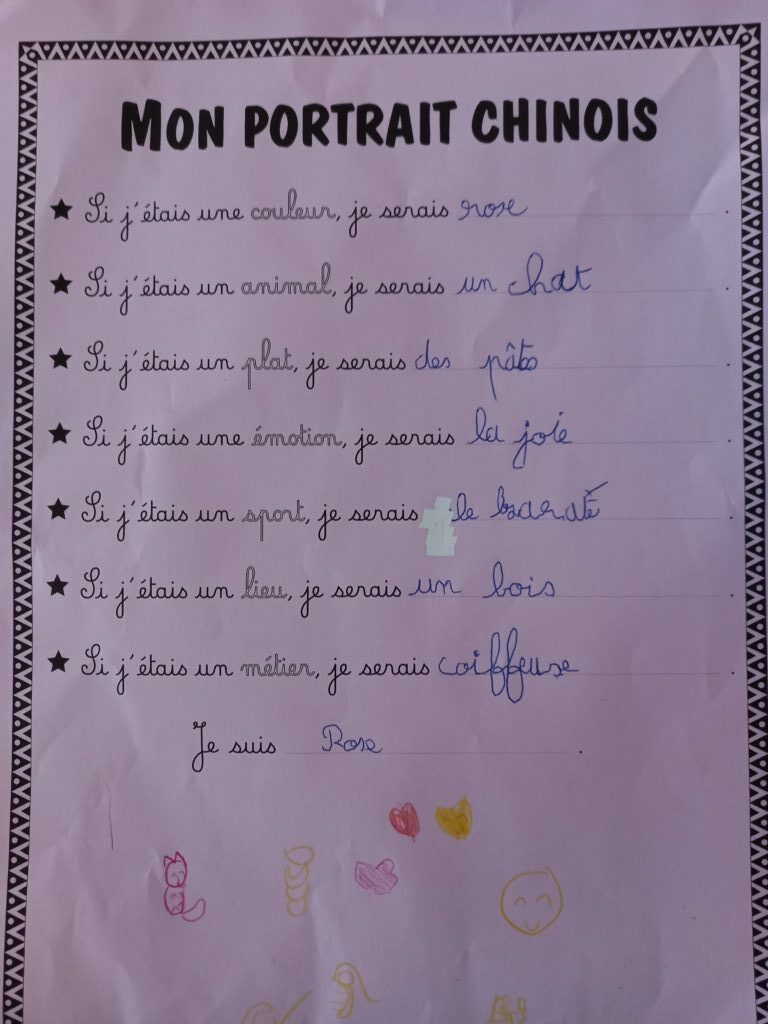 MON PORTRAIT CHINOIS
★ Si j'étais une couleur, je serais rose.
★ Si j'étais un animal, je serais un chat.
★ Si j'étais un plat, je serais des pâtes.
★ Si j'étais une émotion, je serais la joie.
★ Si j'étais un sport, je serais le karaté.
★ Si j'étais un lieu, je serais un bois.
★ Si j'étais un métier, je serais coiffeuse.
Je suis Rose.